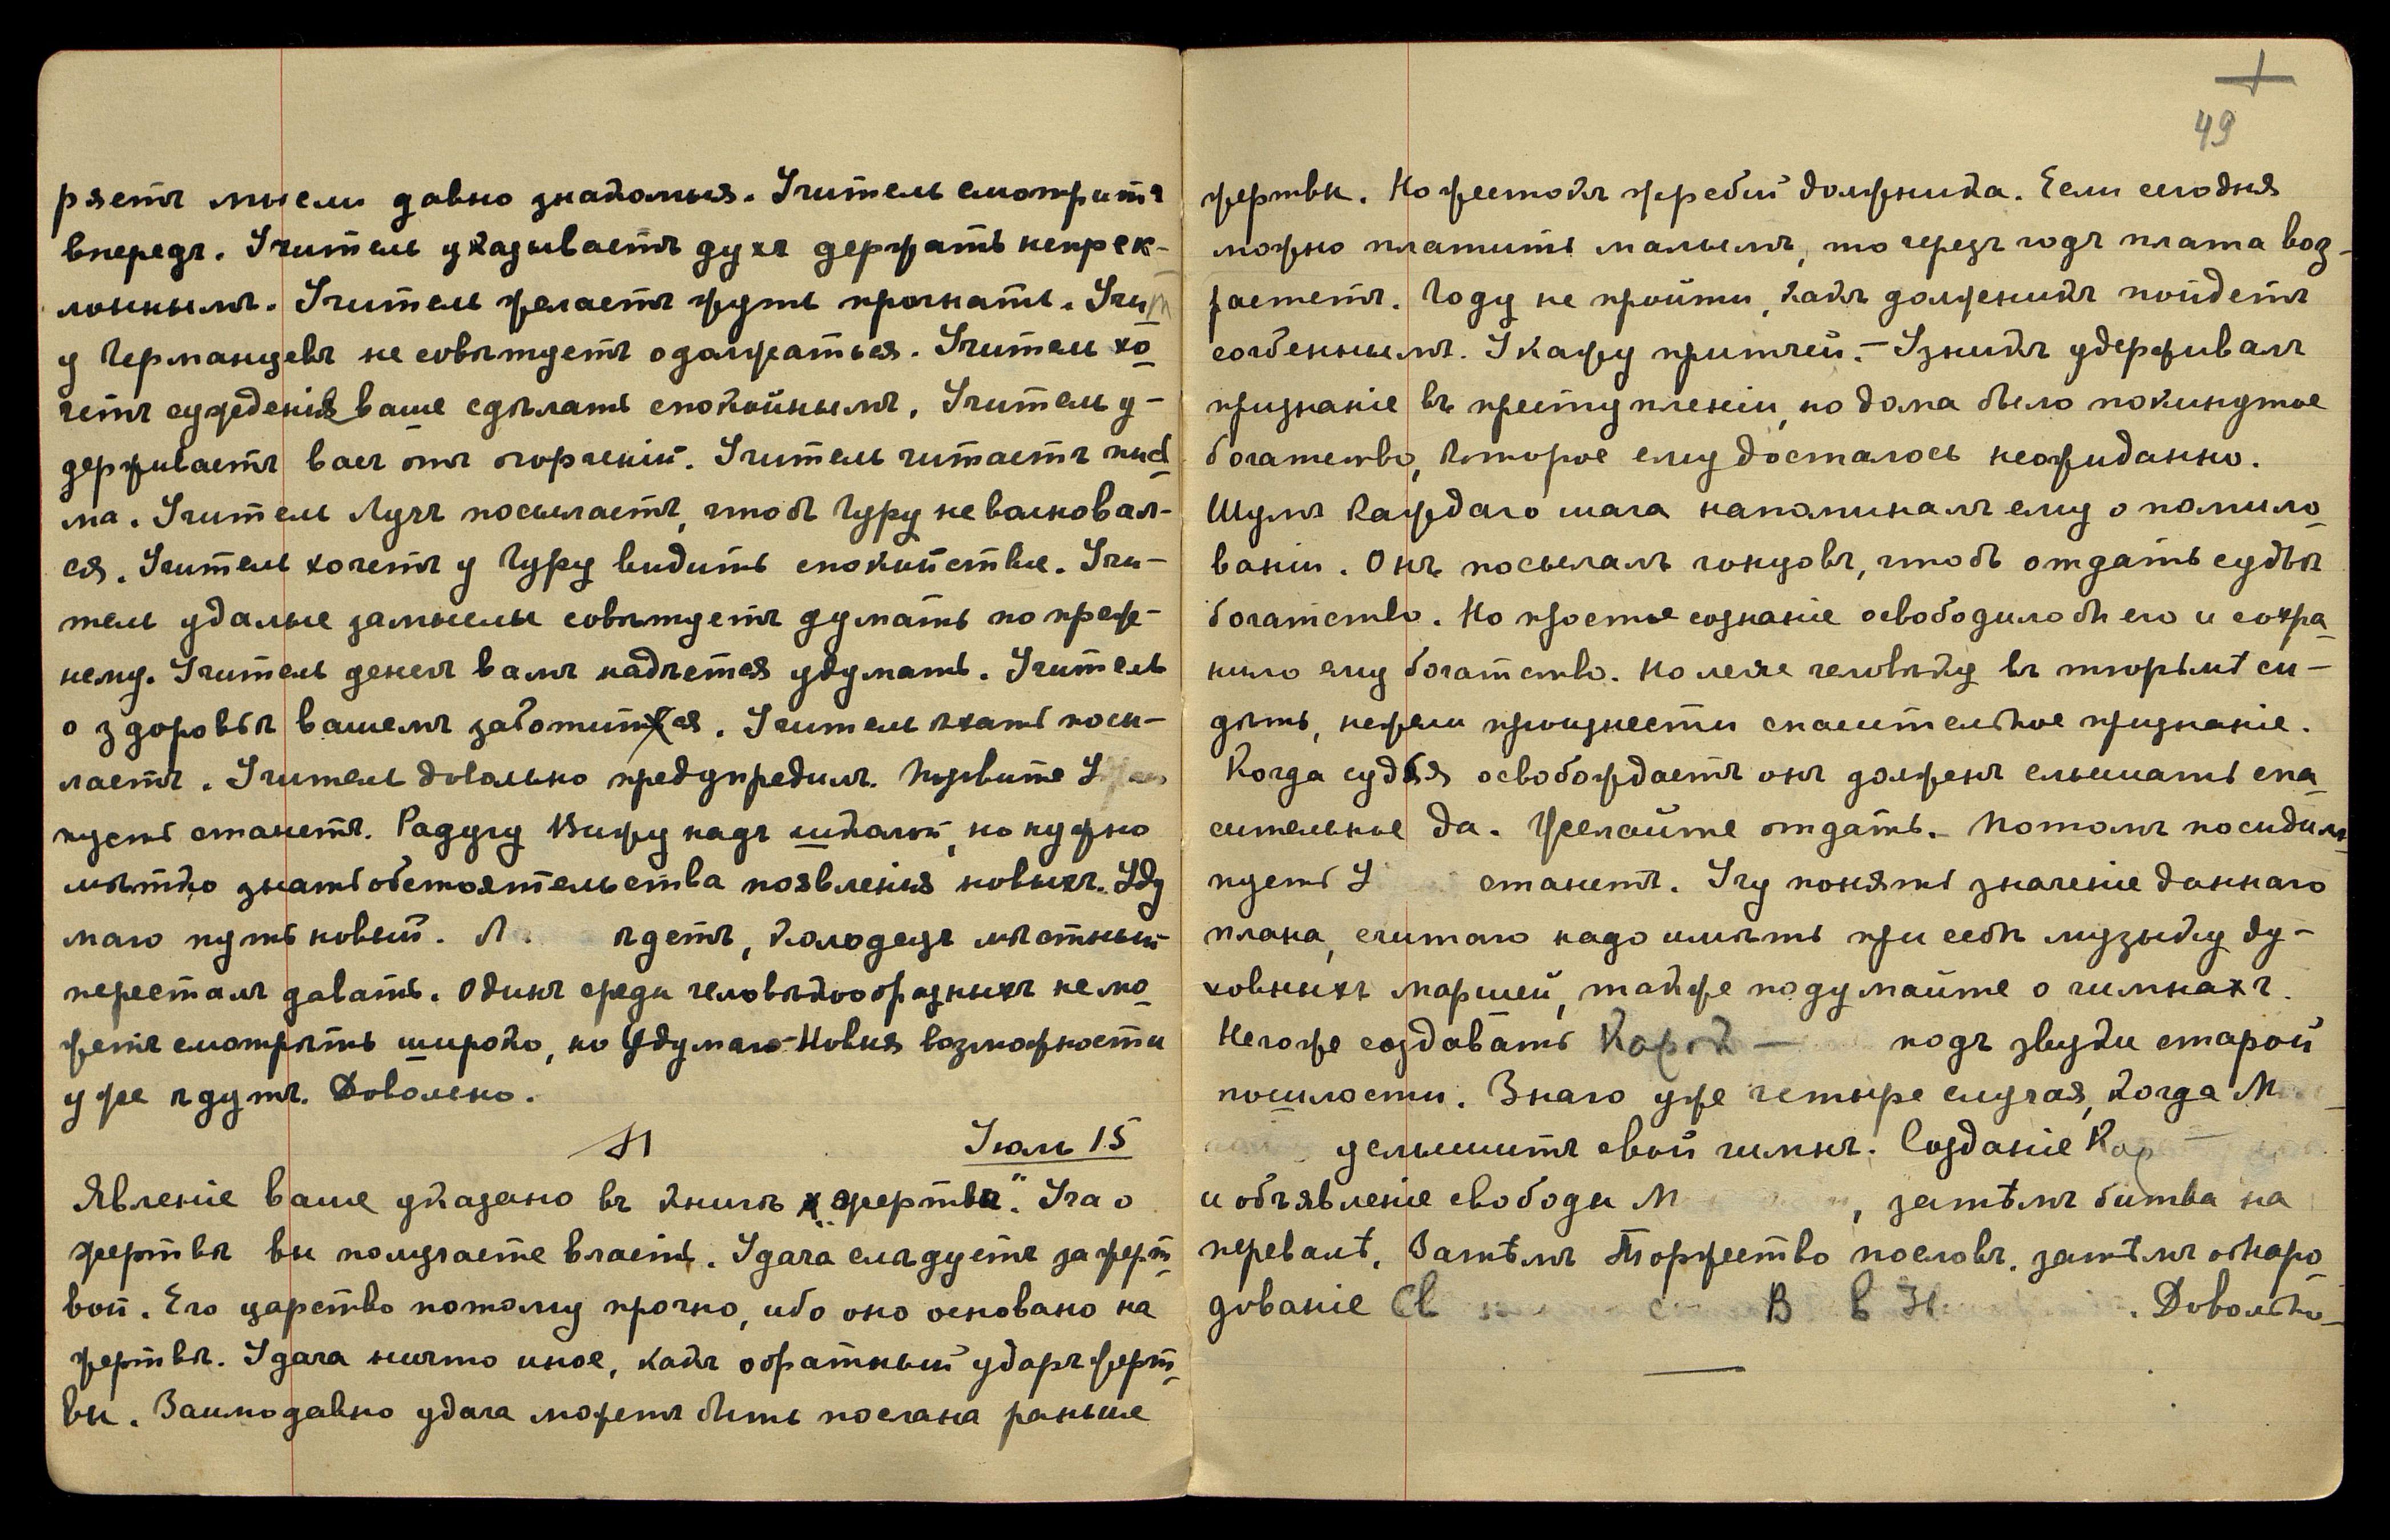 ряетъ мысли давно знакомыя. Учитель смотритъ
впередъ. Учитель указываетъ духъ держать непрек-
лоннымъ. Учитель желаетъ жуть прогнать. Учит
у Германцевъ не совѣтуетъ одолжаться. Учитель хо
четъ сужденія ваше сдѣлать спокойнымъ. Учитель у-
держиваетъ васъ отъ огорченій. Учитель читаетъ пись
ма. Учитель Лучъ посылаетъ, чтобъ Гуру не волновал-
ся. Учитель хочетъ у Гуру видить спокойствіе. Учи-
тель удалые замыслы совѣтуетъ думать по преж-
нему. Учитель денегъ вамъ надѣется удумать. Учитель
о здоровьѣ вашемъ заботится. Учитель ѣхать посы-
лаетъ. Учитель довольно предупредилъ. Позвите У
пусть станетъ. Радугу Вижу надъ школой, но нужно
мѣтко знать обстоятельства появленія новыхъ. Уду
маю путь новый. Л. ѣдетъ, колодецъ мѣстный
пересталъ давать. Одинъ среди человѣкообразныхъ не мо
жетъ смотрѣть широко, но Удумаю Новыя возможности
уже ѣдутъ. Довольно.
Іюль 15
Явленіе ваше указано въ книгѣ „жертвы". Ича о
жертвѣ вы получаете власть. Удача слѣдуетъ за жерт
вой. Его царство потому прочно, ибо оно основано на
жертвѣ. Удача ничто иное, какъ обратный ударъ жерт
вы. Заимодавно удача можетъ быть послана раньше
49
жертвы. Но жестокъ жребій должника. Если сегодня
можно платить малымъ, то черезъ годъ плата воз-
растетъ. Году не пройти, какъ должникъ пойдетъ
согбеннымъ. Укажу притчей. – Узникъ удерживалъ
признаніе въ преступленіи, но дома было покинутое
богатство, которое ему досталось неожиданно.
Шумъ каждаго шага напоминалъ ему о помило
ваніи. Онъ посылалъ гонцовъ, чтобъ отдать судьѣ
богатство. Но простое сознаніе освободило бы его и сохра
нило ему богатство. Но легче человѣку въ тюрьмѣ си-
дѣть, нежели произнести спасительное признаніе.
Когда судья освобождаетъ онъ долженъ слышать спа
сительное да. Желайте отдать. – Потомъ посидимъ
пусть У станетъ. Учу понять значеніе даннаго
плана, считаю надо имѣть при себѣ музыку ду-
ховныхъ маршей, также подумайте о гимнахъ.
Негоже создавать Кор – подъ звуки старой
пошлости. Знаю уже четыре случая, когда М
услышитъ свой гимнъ. Созданіе Кор
и объявленіе свободы М , затѣмъ битва на
перевалѣ, Затѣмъ Торжество пословъ, затѣмъ обнаро
дованіе Св В в . Довольно